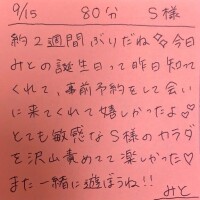 9/15 80分 S様
約2週間ぶりだね♡今日
みとの誕生日って昨日知っ
てくれて、事前予約をして会い
に来てくれて嬉しかったよ♡
とても敏感なS様のカラダ
を沢山責めてて楽しかった♡
また一緒に遊ぼうね!!
みと